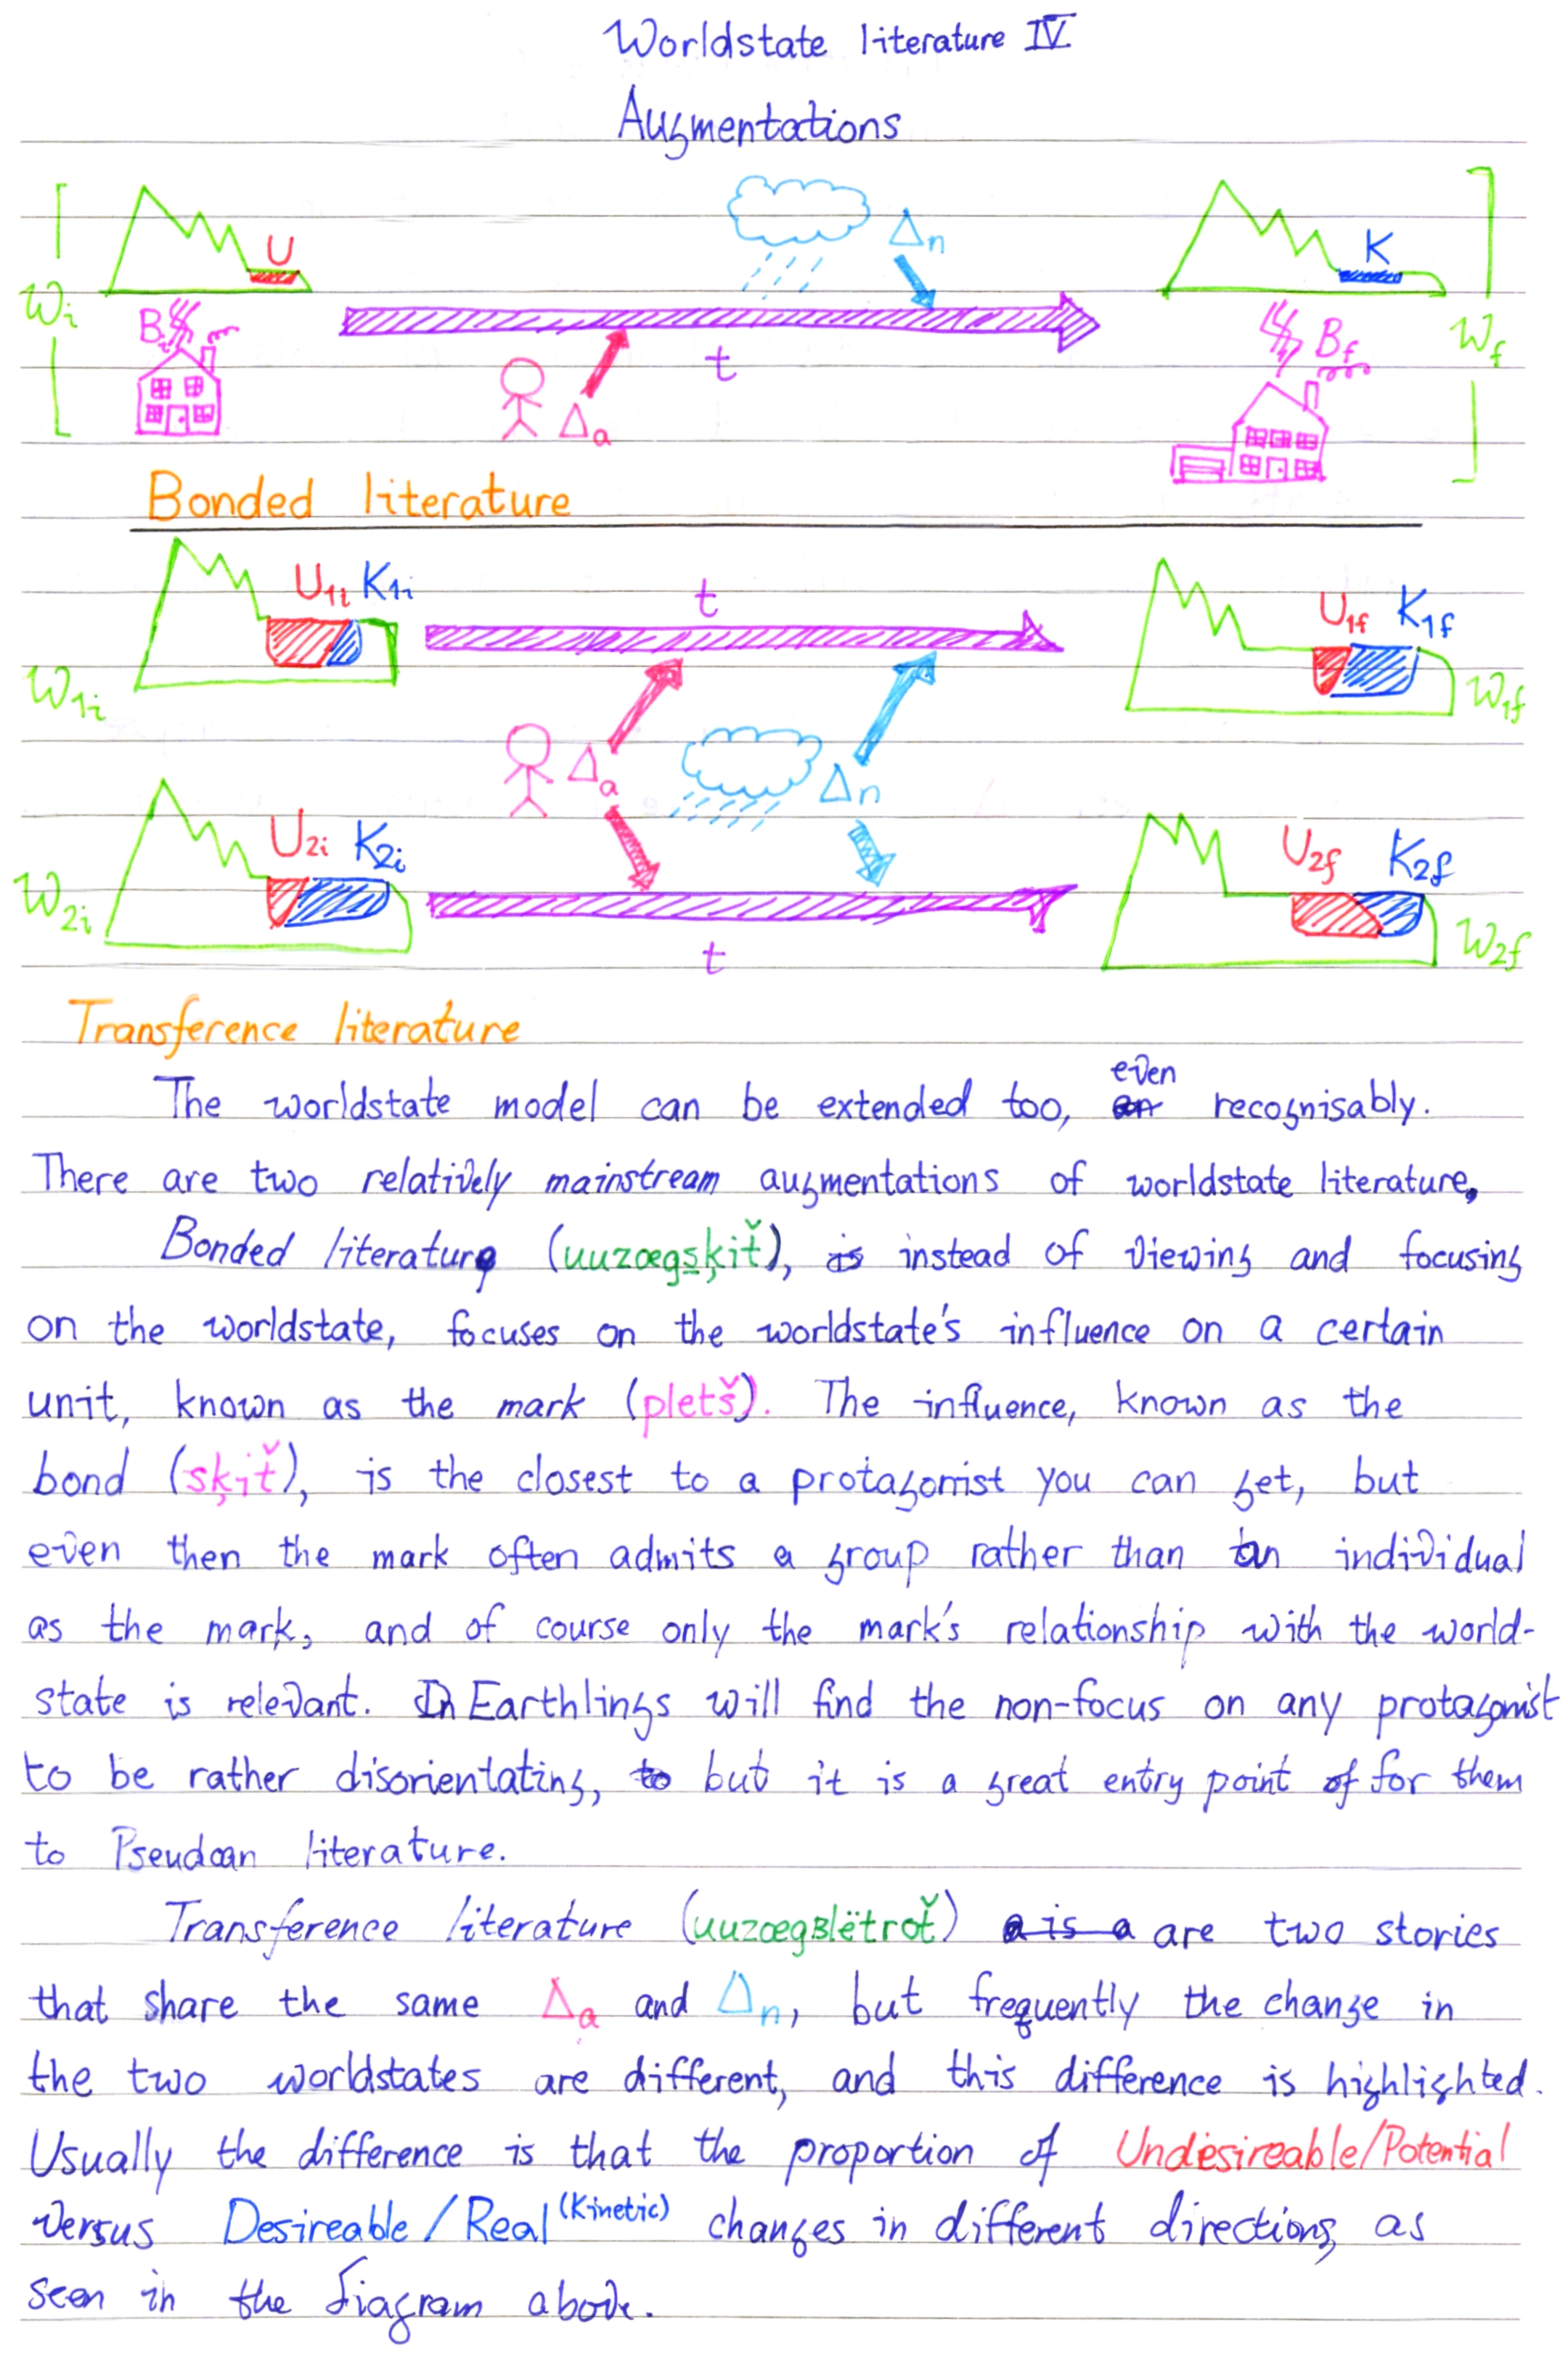 Worldstate literature IV
Augmentations
U
Δn
K
Wi
Bi
t
Bf
Wf
Δa
Bonded literature
U1i K1i
t
U1f K1f
W1i
W1f
Δa
Δn
U2i K2i
U2f K2f
W2i
t
W2f
Transference literature
The worldstate model can be extended too, even recognisably.
There are two relatively mainstream augmentations of worldstate literature.
Bonded literature (uuzœgsķiť), is instead of viewing and focusing
on the worldstate, focuses on the worldstate's influence on a certain
unit, known as the mark (pletš). The influence, known as the
bond (sķiť), is the closest to a protagonist you can get, but
even then the mark often admits a group rather than an individual
as the mark, and of course only the mark's relationship with the world-
state is relevant. Earthlings will find the non-focus on any protagonist
to be rather disorientating, to but it is a great entry point of for them
to Pseudoan literature.
Transference literature (uuzœgblëtroť) a is a are two stories
that share the same Δa and Δn, but frequently the change in
the two worldstates are different, and this difference is highlighted.
Usually the difference is that the proportion of Undesireable/Potential
versus Desireable/Real (Kinetic) changes in different directions, as
seen in the diagram above.